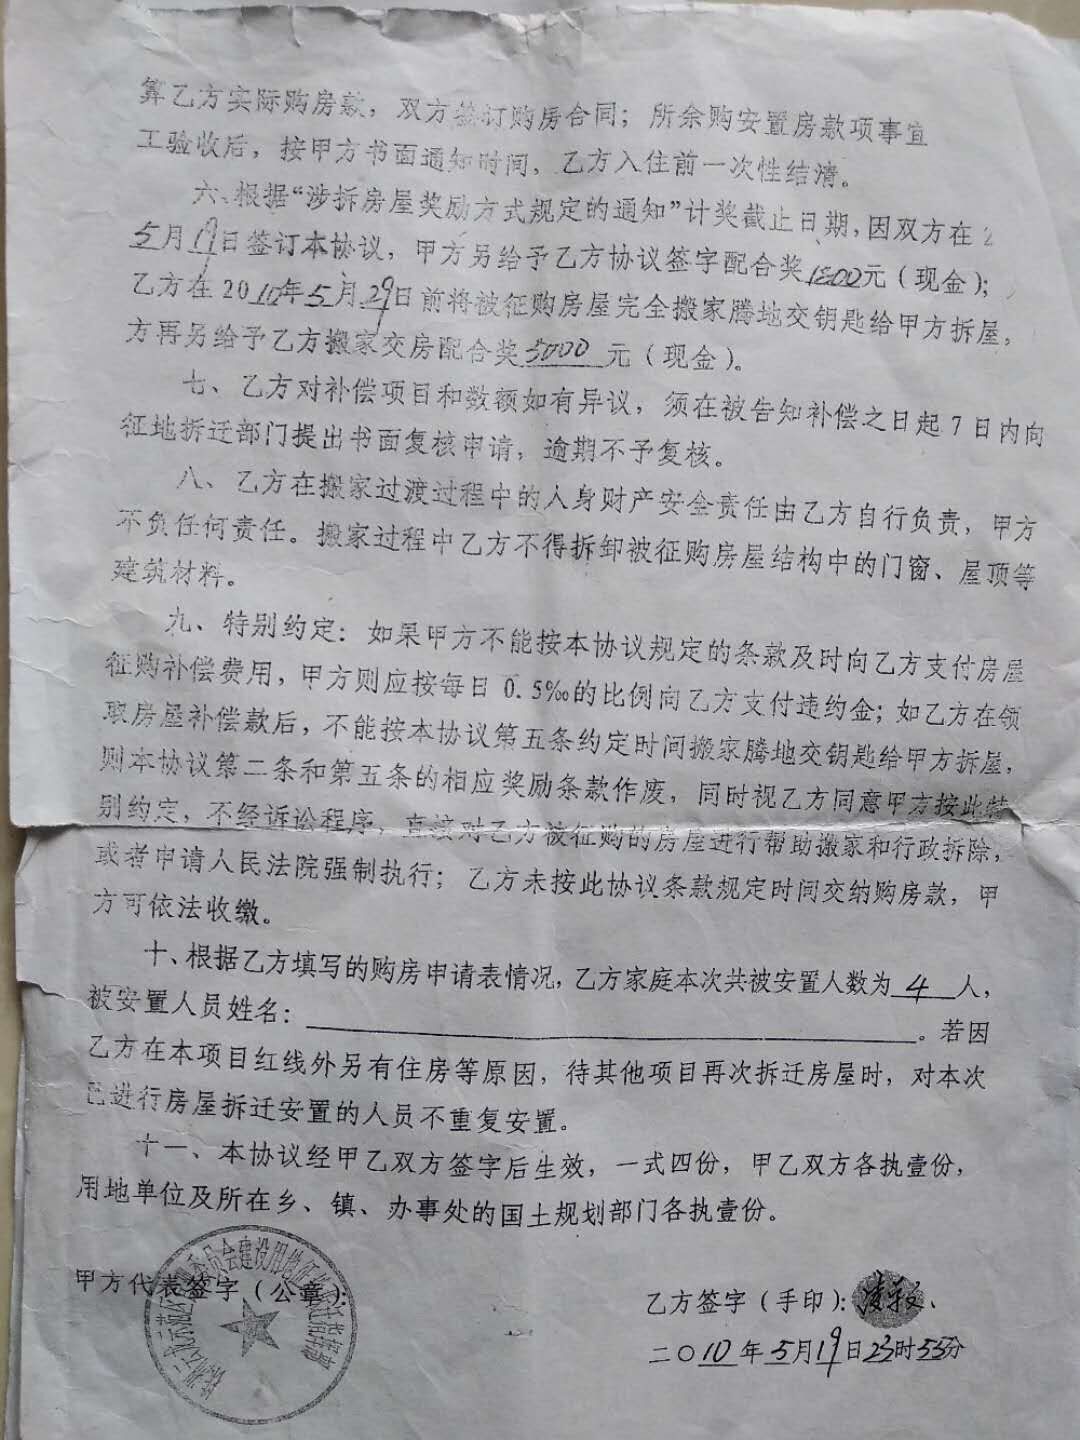 算乙方实际购房款，双方签订购房合同；所余购安置房款项事宜
工验收后，按甲方书面通知时间，乙方入住前一次性结清。
六、根据“涉拆房屋奖励方式规定的通知”计奖截止日期，因双方在2
5月19日签订本协议，甲方另给予乙方协议签字配合奖1800元（现金）；
乙方在2010年5月29日前将被征购房屋完全搬家腾地交钥匙给甲方拆屋，
方再另给予乙方搬家交房配合奖5000元（现金）。
七、乙方对补偿项目和数额如有异议，须在被告知补偿之日起7日内向
征地拆迁部门提出书面复核申请，逾期不予复核。
八、乙方在搬家过渡过程中的人身财产安全责任由乙方自行负责，甲方
不负任何责任。搬家过程中乙方不得拆卸被征购房屋结构中的门窗、屋顶等
建筑材料。
九、特别约定：如果甲方不能按本协议规定的条款及时向乙方支付房屋
征购补偿费用，甲方则应按每日0.5‰的比例向乙方支付违约金；如乙方在领
取房屋补偿款后，不能按本协议第五条约定时间搬家腾地交钥匙给甲方拆屋，
则本协议第二条和第五条的相应奖励条款作废，同时视乙方同意甲方按此特
别约定，不经诉讼程序，直接对乙方被征购的房屋进行帮助搬家和行政拆除，
或者申请人民法院强制执行；乙方未按此协议条款规定时间交纳购房款，甲
方可依法收缴。
十、根据乙方填写的购房申请表情况，乙方家庭本次共被安置人数为4人，
被安置人员姓名：。若因
乙方在本项目红线外另有住房等原因，待其他项目再次拆迁房屋时，对本次
已进行房屋拆迁安置的人员不重复安置。
十一、本协议经甲乙双方签字后生效，一式四份，甲乙双方各执壹份，
用地单位及所在乡、镇、办事处的国土规划部门各执壹份。
甲方代表签字（公章）：
乙方签字（手印）：
二〇10年5月19日23时55分